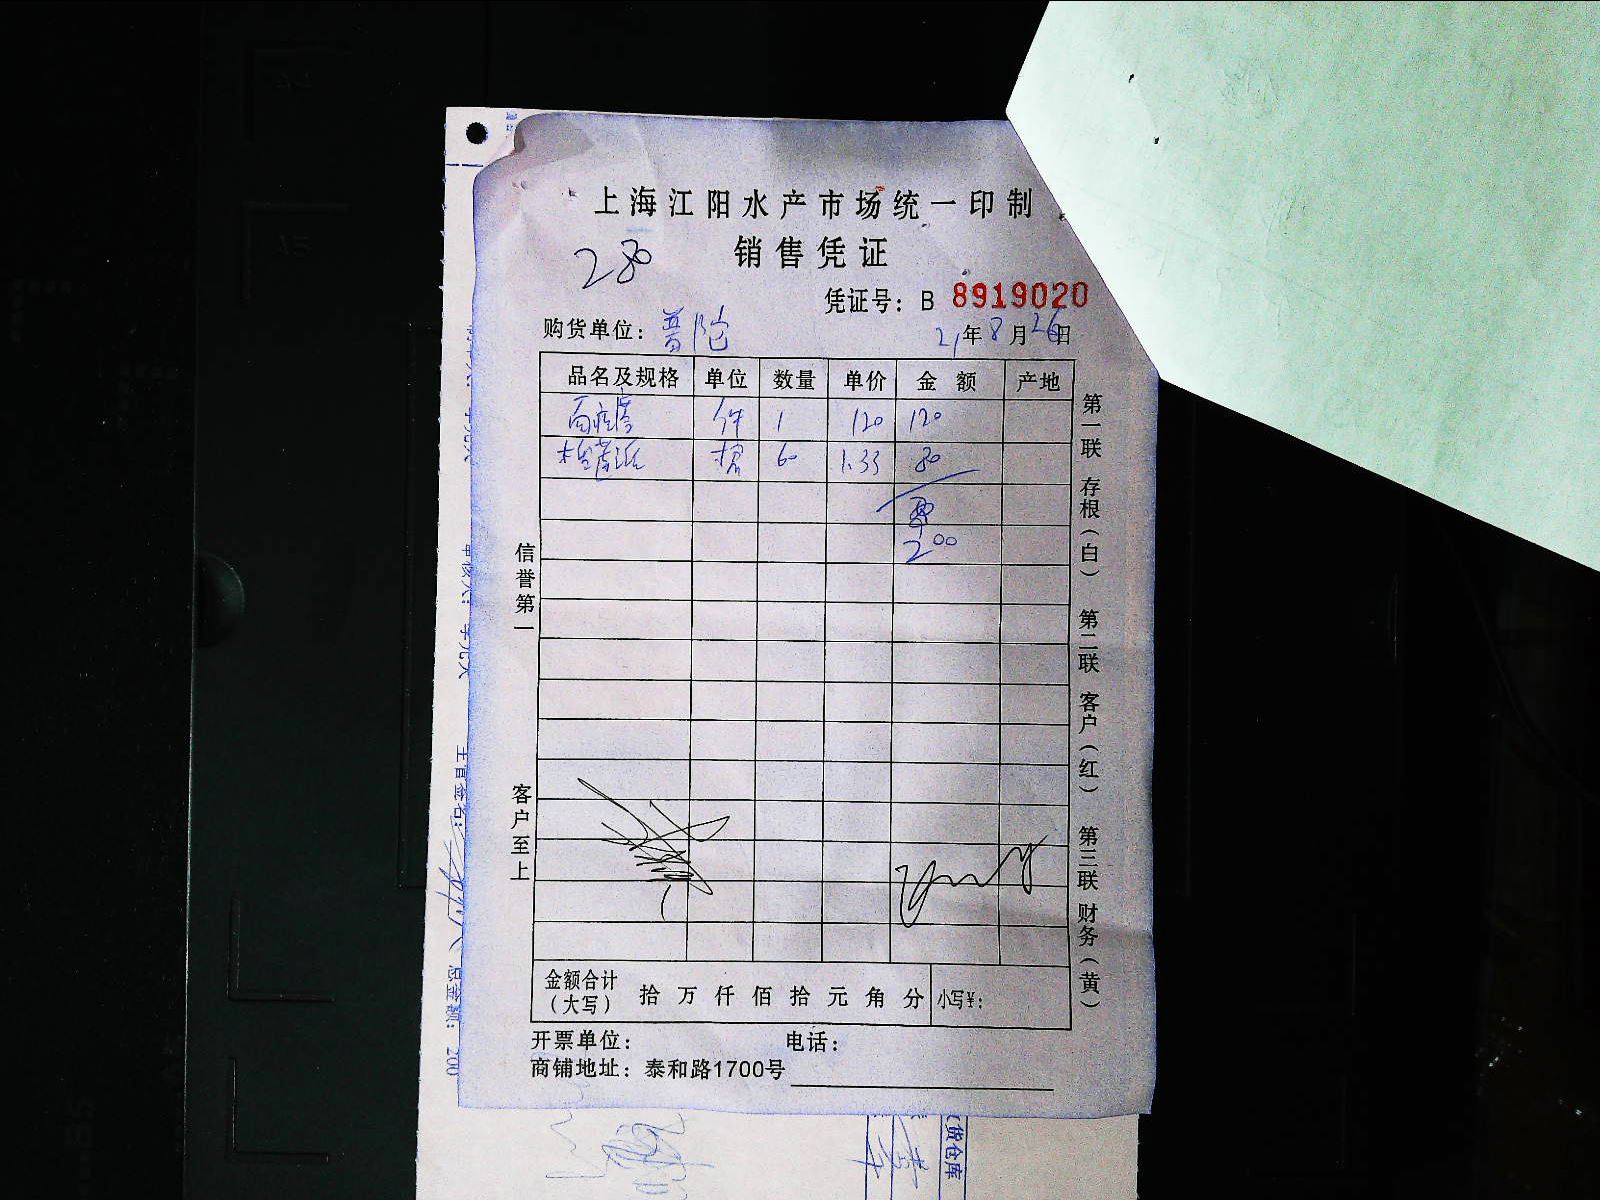 上海江阳水产市场统一印制
销售凭证
280
凭证号：B 8919020
购货单位：普陀
21年8月26日
品名及规格 单位 数量 单价 金额 产地
件 1 120 120
60 1.33 80
200
信誉第一
客户至上
第一联 存根（白） 第二联 客户（红） 第三联 财务（黄）
金额合计（大写） 拾 万 仟 佰 拾 元 角 分 小写¥：
开票单位： 电话：
商铺地址：泰和路1700号
总金额：200
货仓库